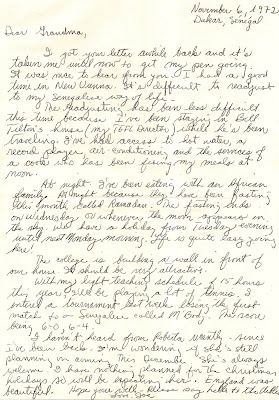 November 6, 1972
Dakar, Senegal
Dear Grandma,
I got your letter awhile back and it's
taken me until now to get my pen going.
It was nice to hear from you. I had a good
time in New Vienna. It's difficult to readjust
to my Senegalese way of life.
The readjusting has been less difficult
this time because I've been staying in Bill
house (my TEFL Director) while he's been
traveling. I've had access to hot water, a
record player, air conditioner, and the services of
a cook who has been fixing my meals at
noon.
At night I've been eating with an African
family. At night because they have been fasting
this month called Ramadan. The fasting ends
on Wednesday or whenever the moon appears in
the sky. We have a holiday from Tuesday evening
until next Monday morning. Life is quite easy going
here!
The college is building a wall in front of
our house. It should be very attractive.
With my light teaching schedule of 15 hours
this year I'll be playing a lot of tennis. I
entered a tournament last week losing the first
match to a Senegalese called M'Bodj. The score
being 6-0, 6-4.
I haven't heard from Roberta recently - since
I've been back. I'm wondering if she's still
planning on coming this December. She's always
welcome. I have nothing planned for the Christmas
holidays so will be expecting her. England was
beautiful. Hope you're well. Please say hello to the
Love, Joe